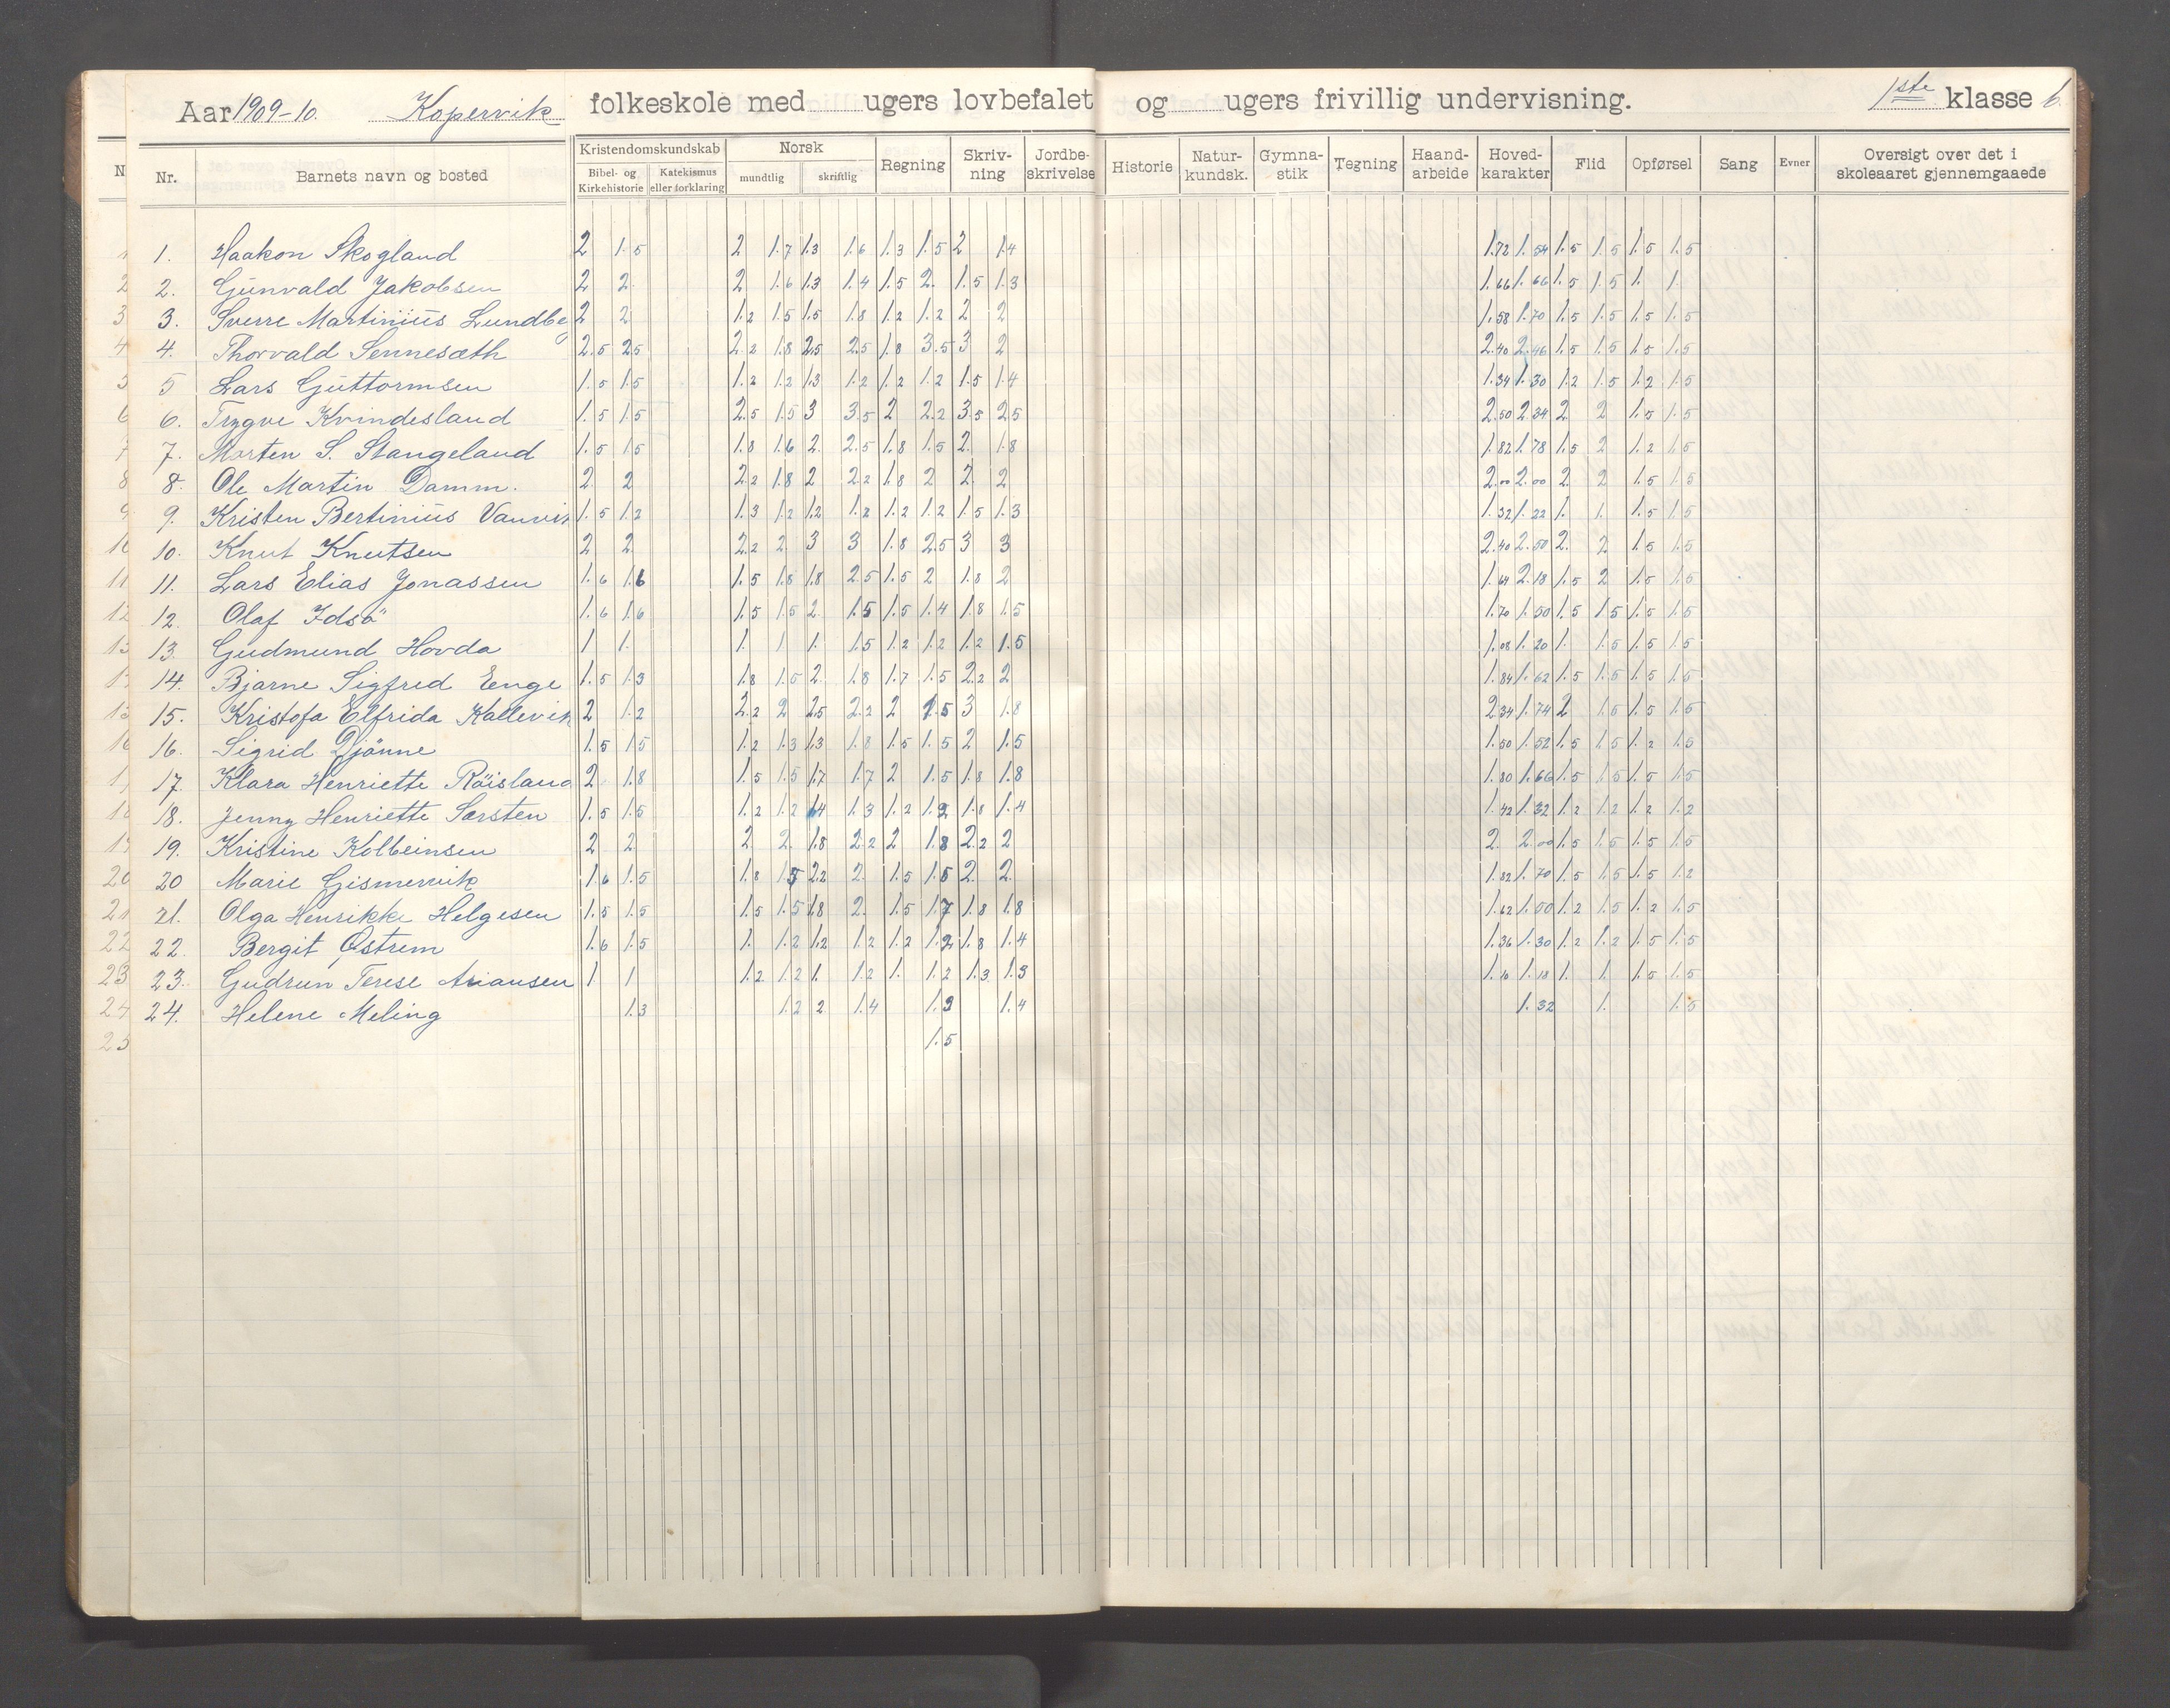 Aar 1909-10. Kopervik folkeskole med ugers lovbefalet og ugers frivillig undervisning. 1ste klasse b.
Nr. Barnets navn og bosted Kristendomskundskab Bibel- og Kirkehistorie Katekismus eller forklaring Norsk mundtlig skriftlig Regning Skriv-ning Jordbe-skrivelse Historie Natur-kundsk. Gymna-stik Tegning Haand-arbeide Hoved-karakter Flid Opførsel Sang Evner Oversigt over det i skoleaaret gjennemgaaede
1. Haakon Skogland 2 1.5 2 1.7 1.3 1.6 1.3 1.5 2 1.4 1.72 1.54 1.5 1.5 1.5 1.5
2. Gunvald Jakobsen 2 2 2 1.6 1.3 1.4 1.5 2. 1.5 1.3 1.66 1.66 1.5 1.5 1. 1.
3. Sverre Martinius Lundbe 2 2 1.2 1.5 1.5 1.8 1.2 1.2 2 2 1.58 1.70 1.5 1.5 1.5 1.5
4. Thorvald Sennesæth 2.5 2.5 2.2 1.8 2.5 2.5 1.8 3.5 3 2 2.40 2.46 1.5 1.5 1.5 1.5
5 Lars Guttormsen 1.5 1.5 1.2 1.2 1.3 1.2 1.2 1.2 1.5 1.4 1.34 1.30 1.2 1.5 1.2 1.5
6. Trygve Kvindesland 1.5 1.5 2.5 1.5 3 3.5 2 2.2 3.5 2.5 2.50 2.34 2. 2 1.5 1.5
7. Morten S. Stangeland 1.5 1.5 1.8 1.6 2. 2.5 1.8 1.5 2. 1.8 1.82 1.78 1.5 2 1.2 1.5
8. Ole Martin Damm. 2. 2 2.2 1.8 2 2.2 1.8 2 2. 2 2.00 2.00 2. 2 1.5 1.5
9. Kristen Bertinius Vanvik 1.5 1.2 1.3 1.2 1.2 1.2 1.2 1.2 1.5 1.3 1.32 1.22 1. 1. 1.5 1.5
10. Knut Knutsen 2 2 2.2 2 3 3 1.8 2.5 3 3 2.40 2.50 2. 2 1.5 1.5
11. Lars Elias Jonassen 1.6 1.6 1.5 1.8 1.8 2.5 1.5 2 1.8 2 1.64 2.18 1.5 2 1.5 1.5
12. Olaf Idsö 1.6 1.6 1.5 1.5 2. 1.5 1.5 1.4 1.8 1.5 1.70 1.50 1.5 1.5 1.5 1.5
13. Gudmund Hovda 1 1. 1. 1 1. 1.5 1.2 1.2 1.2 1.5 1.08 1.20 1. 1.5 1.5 1.5
14. Bjarne Sigfred Enge 1.5 1.3 1.8 1.5 2. 1.8 1.7 1.5 2.2 2 1.84 1.62 1.5 1.5 1.5 1.5
15. Kristofa Elfrida Kallevik 2 1.2 2.2 2 2.5 2.2 2 1.5 3 1.8 2.34 1.74 2 1.5 1.5 1.5
16. Sigrid Djönne 1.5 1.5 1.2 1.3 1.3 1.8 1.5 1.5 2 1.5 1.50 1.52 1.5 1.5 1.2 1.5
17. Klara Henriette Röisland 2 1.8 1.5 1.5 1.7 1.7 2 1.5 1.8 1.8 1.80 1.66 1.5 1.5 1.5 1.5
18. Jenny Henriette Sørsten 1.5 1.5 1.2 1.2 1.4 1.3 1.2 1.2 1.8 1.4 1.42 1.32 1.2 1.2 1.2 1.2
19. Kristine Kolbeinsen 2 2 2 2. 1.8 2.2 2 1.8 2.2 2 2. 2.00 1.5 1.5 1.5 1.5
20 Marie Gismervik 1.6 1.5 1.8 1.5 2.2 2. 1.5 1.5 2. 2. 1.82 1.70 1.5 1.5 1.5 1.2
21. Olga Henrikke Helgesen 1.5 1.5 1.5 1.5 1.8 2. 1.5 1.7 1.8 1.8 1.62 1.2 1.5 1.2 1.5
22. Bergit Østrem 1.6 1.5 1. 1.2 1.2 1.2 1.2 1.2 1.8 1.4 1.36 1.30 1.2 1.2 1.5 1.5
23. Gudrun Terese Ariansen 1 1 1.2 1.2 1. 1.2 1. 1.2 1.3 1.3 1.10 1.18 1. 1. 1.5 1.5
24. Helene Meling 1.3 1.2 2 1.4 1.3 1.4 1.32 1. 1.5
1.5